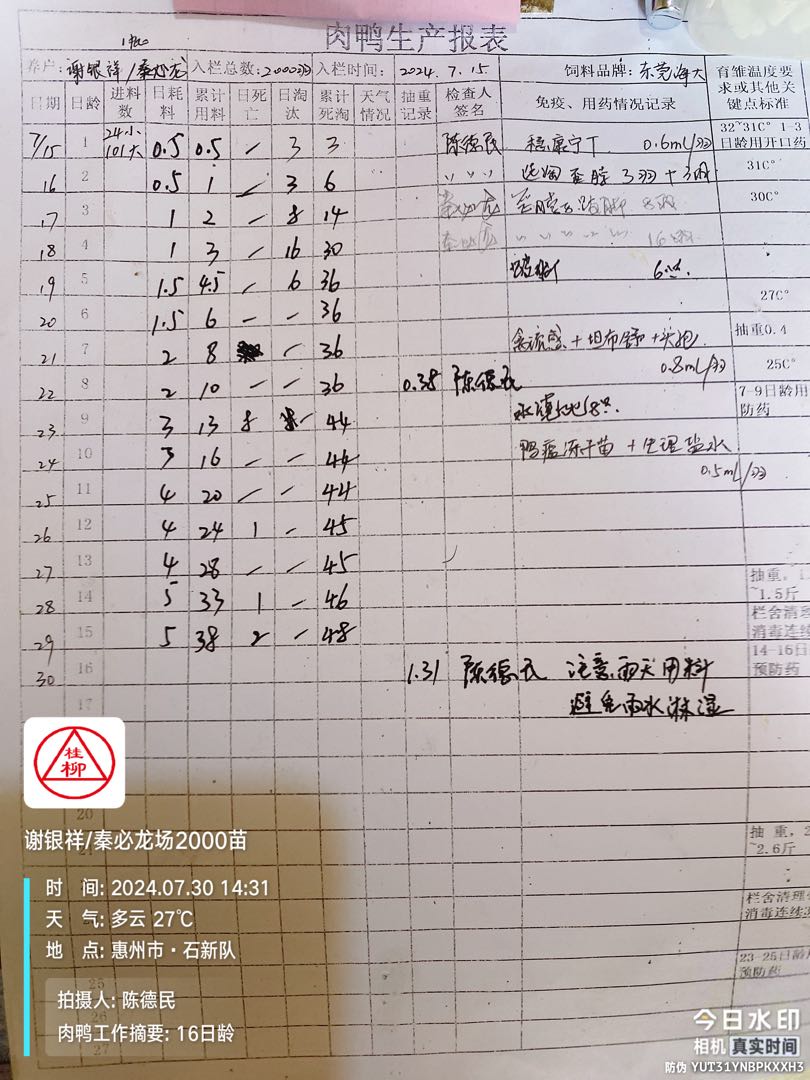 肉鸭生产报表
养户: 谢银祥/秦必龙 入栏总数: 2000羽 入栏时间: 2024.7.15 饲料品牌: 东莞海大 育雏温度要求或其他关键点标准
日期 日龄 进料数 日耗料 累计用料 日死亡 日淘汰 累计死淘 天气情况 抽重记录 检查人签名 免疫、用药情况记录
7/15 1 24小 101大 0.5 0.5 - 3 3 陈德民 0.6mL/羽 32~31C° 1-3日龄用开口药
16 2 0.5 1 - 3 6 〃 〃 〃 3羽+3羽 31C°
17 3 1 2 - 8 14 秦必龙 8羽 30C°
18 4 1 3 - 16 30 秦必龙 〃 〃 〃 〃 〃
19 5 1.5 4.5 - 6 36
20 6 1.5 6 - - 36 27C°
21 7 2 8 - 36 禽流感+坦布舒+头孢 0.8mL/羽 抽重0.4
22 8 2 10 - - 36 0.38 陈德民 25C°
23 9 3 13 8 - 44 7-9日龄用防药
24 10 3 16 - - 44 鸭瘟冻干苗+生理盐水
25 11 4 20 - - 44 0.5mL/羽
26 12 4 24 1 - 45
27 13 4 28 - - 45
28 14 5 33 1 - 46 抽重, 1 ~1.5斤
29 15 5 38 2 - 48 栏舍清理 消毒连续
30 16 1.31 陈德民 注意雨天用料 14-16日 预防药
17 避免雨水淋湿
桂柳
20
抽重, 2
~2.6斤
谢银祥/秦必龙场2000苗
时 间: 2024.07.30 14:31
天 气: 多云 27℃
地 点: 惠州市·石新队
栏舍清理
消毒连续
23-25日龄
预防药
25
26
27
拍摄人: 陈德民
肉鸭工作摘要: 16日龄
今日水印
相机 真实时间
防伪 YUT31YNBPKXXH3